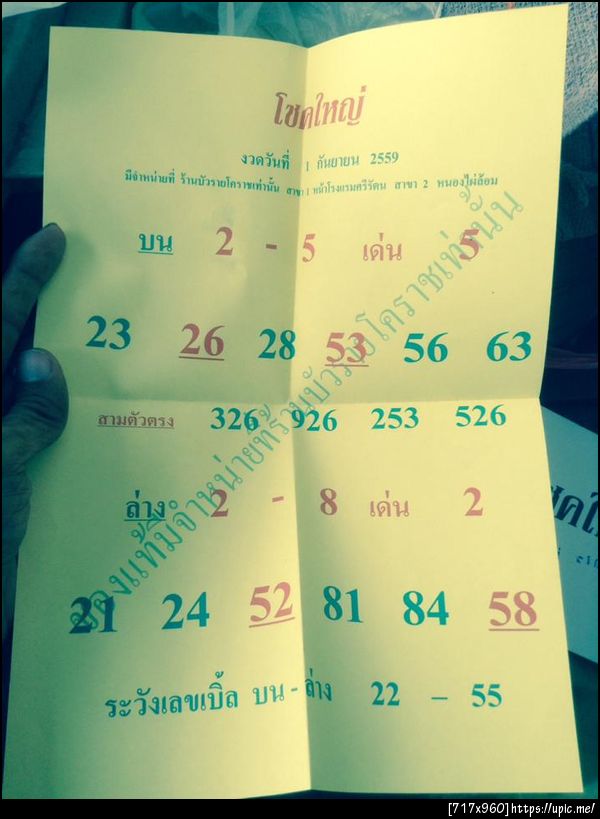 โชคใหญ่
งวดวันที่ 1 กันยายน 2559
มีจำหน่ายที่ ร้านบัวรายโคราชเท่านั้น สาขา 1 หน้าโรงแรมศรีรัตน สาขา 2 หนองไผ่ล้อม
บน 2 - 5 เด่น 5
23 26 28 53 56 63
สามตัวตรง 326 926 253 526
ล่าง 2 - 8 เด่น 2
21 24 52 81 84 58
ระวังเลขเบิ้ล บน - ล่าง 22 - 55
ของแท้มีจำหน่ายที่ร้านบัวรายโคราชเท่านั้น
[717x960]https://upic.me/